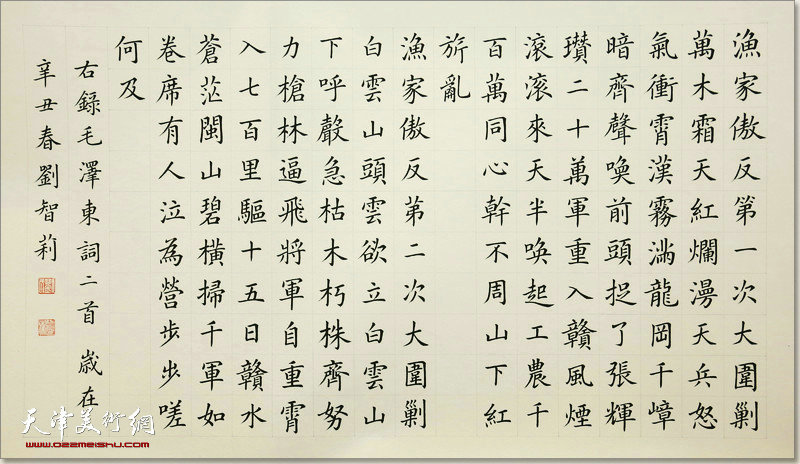 漁家傲反第一次大圍剿
萬木霜天紅爛漫天兵怒
氣衝霄漢霧滿龍岡千嶂
暗齊聲喚前頭捉了張輝
瓚二十萬軍重入贛風煙
滾滾來天半喚起工農千
百萬同心幹不周山下紅
旂亂
漁家傲反第二次大圍剿
白雲山頭雲欲立白雲山
下呼聲急枯木朽株齊努
力槍林逼飛將軍自重霄
入七百里驅十五日贛水
蒼茫閩山碧橫掃千軍如
卷席有人泣為營步步嗟
何及
右錄毛澤東詞二首 歲在
辛丑春劉智莉
天津美術網
www.022meishu.com